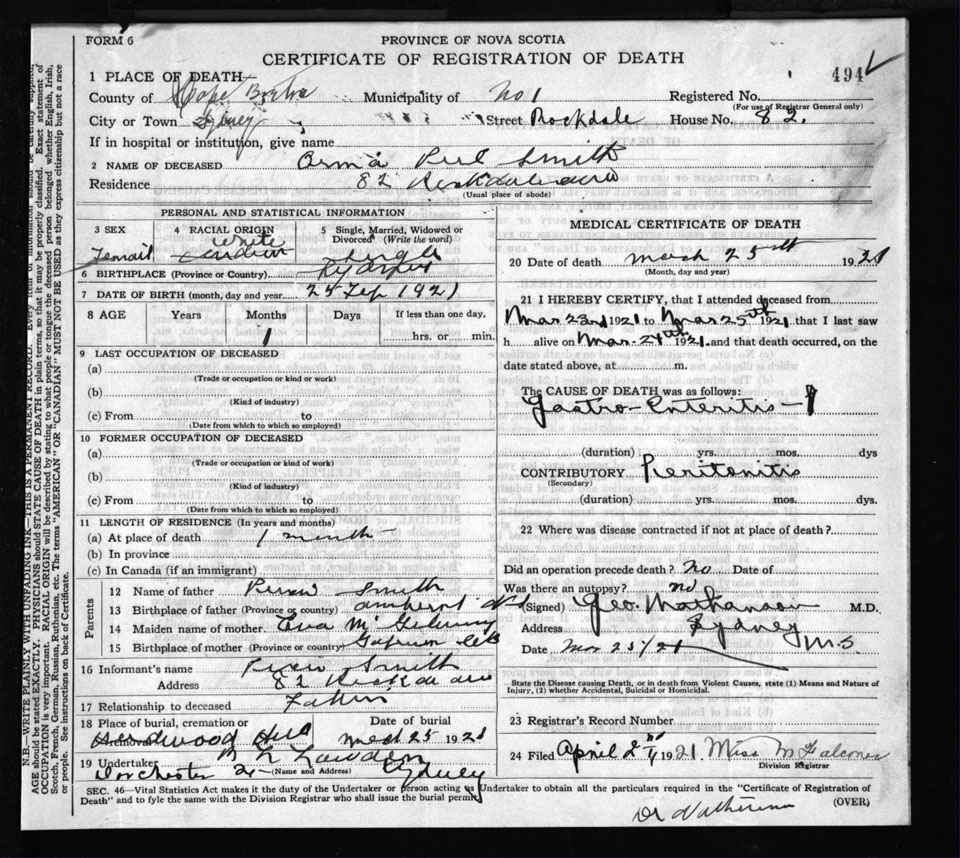 FORM 6
PROVINCE OF NOVA SCOTIA
CERTIFICATE OF REGISTRATION OF DEATH
494
1 PLACE OF DEATH
County of Cape Breton Municipality of No 1 Registered No.
(For use of Registrar General only)
City or Town Sydney Street Rockdale House No. 82.
If in hospital or institution, give name
2 NAME OF DECEASED Smith
Residence 82 Rockdale
(Usual place of abode)
PERSONAL AND STATISTICAL INFORMATION
3 SEX Female
4 RACIAL ORIGIN white
5 Single, Married, Widowed or Divorced (Write the word) Single
6 BIRTHPLACE (Province or Country) Sydney
7 DATE OF BIRTH (month, day and year) 25 Feb 1921
8 AGE Years Months Days If less than one day,
1 hrs. or min.
9 LAST OCCUPATION OF DECEASED
(a)
(Trade or occupation or kind or work)
(b)
(Kind of industry)
(c) From to
(Date from which to which so employed)
10 FORMER OCCUPATION OF DECEASED
(a)
(Trade or occupation or kind of work)
(b)
(Kind of industry)
(c) From to
(Date from which to which so employed)
11 LENGTH OF RESIDENCE (In years and months)
(a) At place of death 1 month
(b) In province
(c) In Canada (if an immigrant)
Parents
12 Name of father Smith
13 Birthplace of father (Province or country) Amherst N S
14 Maiden name of mother Eva
15 Birthplace of mother (Province or country)
16 Informant's name Smith
Address 82
17 Relationship to deceased Father
18 Place of burial, cremation or removal Hardwood Hill
Date of burial March 25 1921
19 Undertaker
(Name and Address) Dorchester St Sydney
MEDICAL CERTIFICATE OF DEATH
20 Date of death March 25th 1921
(Month, day and year)
21 I HEREBY CERTIFY, that I attended deceased from
Mar 23rd 1921 to Mar 25th 1921 that I last saw
h alive on Mar 24th 1921. and that death occurred, on the
date stated above, at m.
The CAUSE OF DEATH was as follows:
Gastro-Enteritis-
(duration) yrs. mos. dys
CONTRIBUTORY Peritonitis
(Secondary)
(duration) yrs. mos. dys.
22 Where was disease contracted if not at place of death?
Did an operation precede death? no Date of
Was there an autopsy? no
(Signed) Geo. M.D.
Address Sydney N.S.
Date Mar 25/21
State the Disease causing Death, or in death from Violent Causes, state (1) Means and Nature of
Injury, (2) whether Accidental, Suicidal or Homicidal.
23 Registrar's Record Number
24 Filed April 2nd 1921. Miss M Falconer
Division Registrar
SEC. 46—Vital Statistics Act makes it the duty of the Undertaker or person acting as Undertaker to obtain all the particulars required in the "Certificate of Registration of
Death" and to fyle the same with the Division Registrar who shall issue the burial permit.
(OVER)
N.B.—WRITE PLAINLY WITH UNFADING INK—THIS IS A PERMANENT RECORD. Every item of information should be carefully supplied.
AGE should be stated EXACTLY. PHYSICIANS should STATE CAUSE OF DEATH in plain terms, so that it may be properly classified. Exact statement of
OCCUPATION is very important. RACIAL ORIGIN will be described by stating to what people or tongue the deceased person belonged, whether English, Irish,
Scotch, French, German, Russian, Ruthenian, etc. The terms "AMERICAN" OR "CANADIAN" MUST NOT BE USED as they express citizenship but not a race
or people. See instructions on back of Certificate.